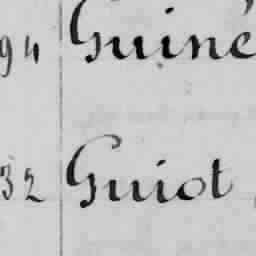 94 Guiné
32 Guiot